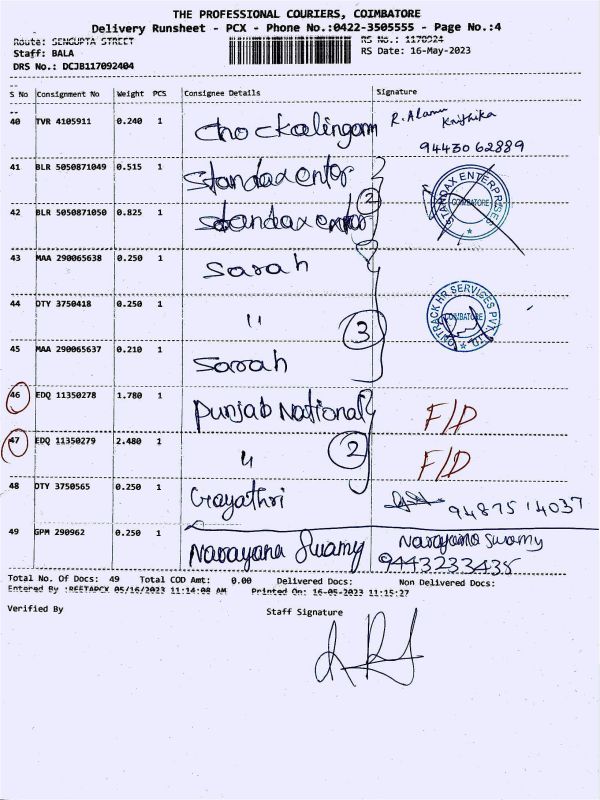 THE PROFESSIONAL COURIERS, COIMBATORE
Delivery Runsheet - PCX - Phone No.:0422-3505555 - Page No.:4
Route: SENGUPTA STREET RS No.: 1170924
Staff: BALA RS Date: 16-May-2023
DRS No.: DCJB117092404
S No Consignment No Weight PCS Consignee Details Signature
40 TVR 4105911 0.240 1 Chockalingam R. Alamu Krithika
94430 62889
41 BLR 5050871049 0.515 1 Standax enter STANDAX ENTERPRISES COIMBATORE
2
42 BLR 5050871050 0.825 1 Standax enter
43 MAA 290065638 0.250 1 Sarah
44 DTY 3750418 0.250 1 " HR SERVICES PVT. LTD COIMBATORE
3
45 MAA 290065637 0.210 1 Sarah
46 EDQ 11350278 1.780 1 Punjab National F/D
47 EDQ 11350279 2.480 1 " 2 F/D
48 DTY 3750565 0.250 1 Gayathri 94875 14037
49 GPM 290962 0.250 1 Narayana Swamy Narayana Swamy
9443233435
Total No. Of Docs: 49 Total COD Amt: 0.00 Delivered Docs: Non Delivered Docs:
Entered By :REETAPCX 05/16/2023 11:14:08 AM Printed On: 16-05-2023 11:15:27
Verified By Staff Signature